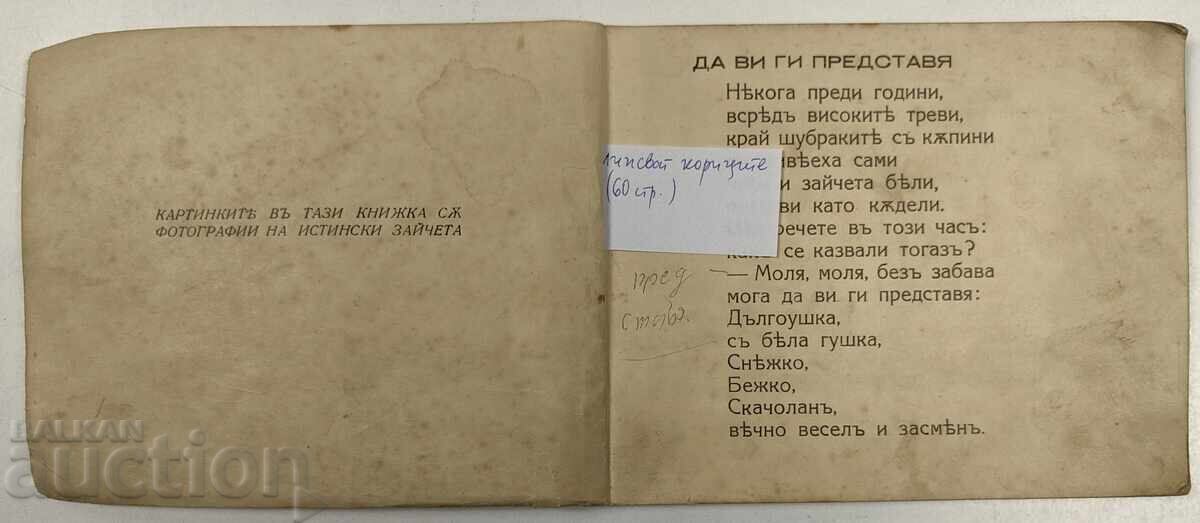 КАРТИНКИТѢ ВЪ ТАЗИ КНИЖКА СѪ
ФОТОГРАФИИ НА ИСТИНСКИ ЗАЙЧЕТА
ДА ВИ ГИ ПРЕДСТАВЯ
Нѣкога преди години,
всрѣдъ високитѣ треви,
край шубракитѣ съ кѫпини
сами
зайчета бѣли,
като кѫдели.
въ този часъ:
се казвали тогазъ?
— Моля, моля, безъ забава
мога да ви ги представя:
Дългоушка,
съ бѣла гушка,
Снѣжко,
Бежко,
Скачоланъ,
вѣчно веселъ и засмѣнъ.
липсват кориците
(60 стр.)
пред
ставя
BALKAN
auction